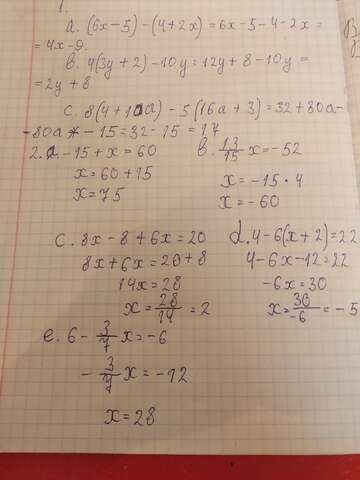 1.
a. (6x-5)-(4+2x)=6x-5-4-2x=
=4x-9.
b. 4(3y+2)-10y=12y+8-10y=
=2y+8
c. 8(4+10a)-5(16a+3)=32+80a-
-80a-15=32-15=17
2. a. -15+x=60
x=60+15
x=75
b. 13/15 x=-52
x=-15·4
x=-60
c. 8x-8+6x=20
8x+6x=20+8
14x=28
x=28/14=2
d. 4-6(x+2)=22
4-6x-12=22
-6x=30
x=30/-6=-5
e. 6-3/7 x=-6
-3/7 x=-12
x=28